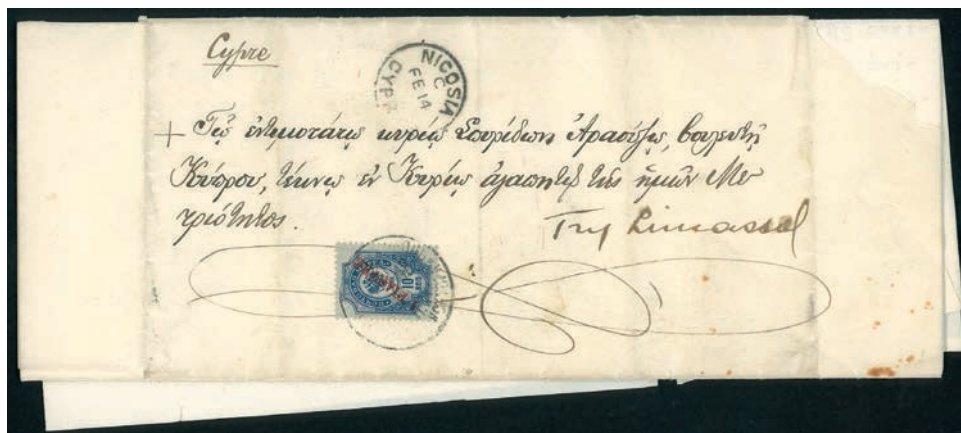 Cypre
NICOSIA
C
FE 14
CYPR
+ Τῷ ἐντιμοτάτῳ κυρίῳ Σπυρίδωνι Ἀραούζῳ, βουλευτῇ
Κύπρου, τέκνῳ ἐν Κυρίῳ ἀγαπητῷ τῆς ἡμῶν Με
τριότητος.
Try Limassol
10